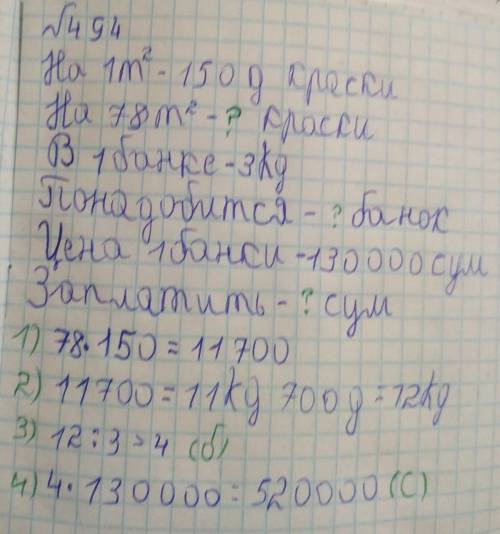 №494
На 1m² - 150g краски
На 78m² - ? краски
В 1 банке - 3kg
Понадобится - ? банок
Цена 1 банки - 130000 сум
Заплатить - ? сум
1) 78 · 150 = 11700
2) 11700 = 11kg 700g = 12kg
3) 12 : 3 = 4 (б)
4) 4 · 130000 = 520000 (С)